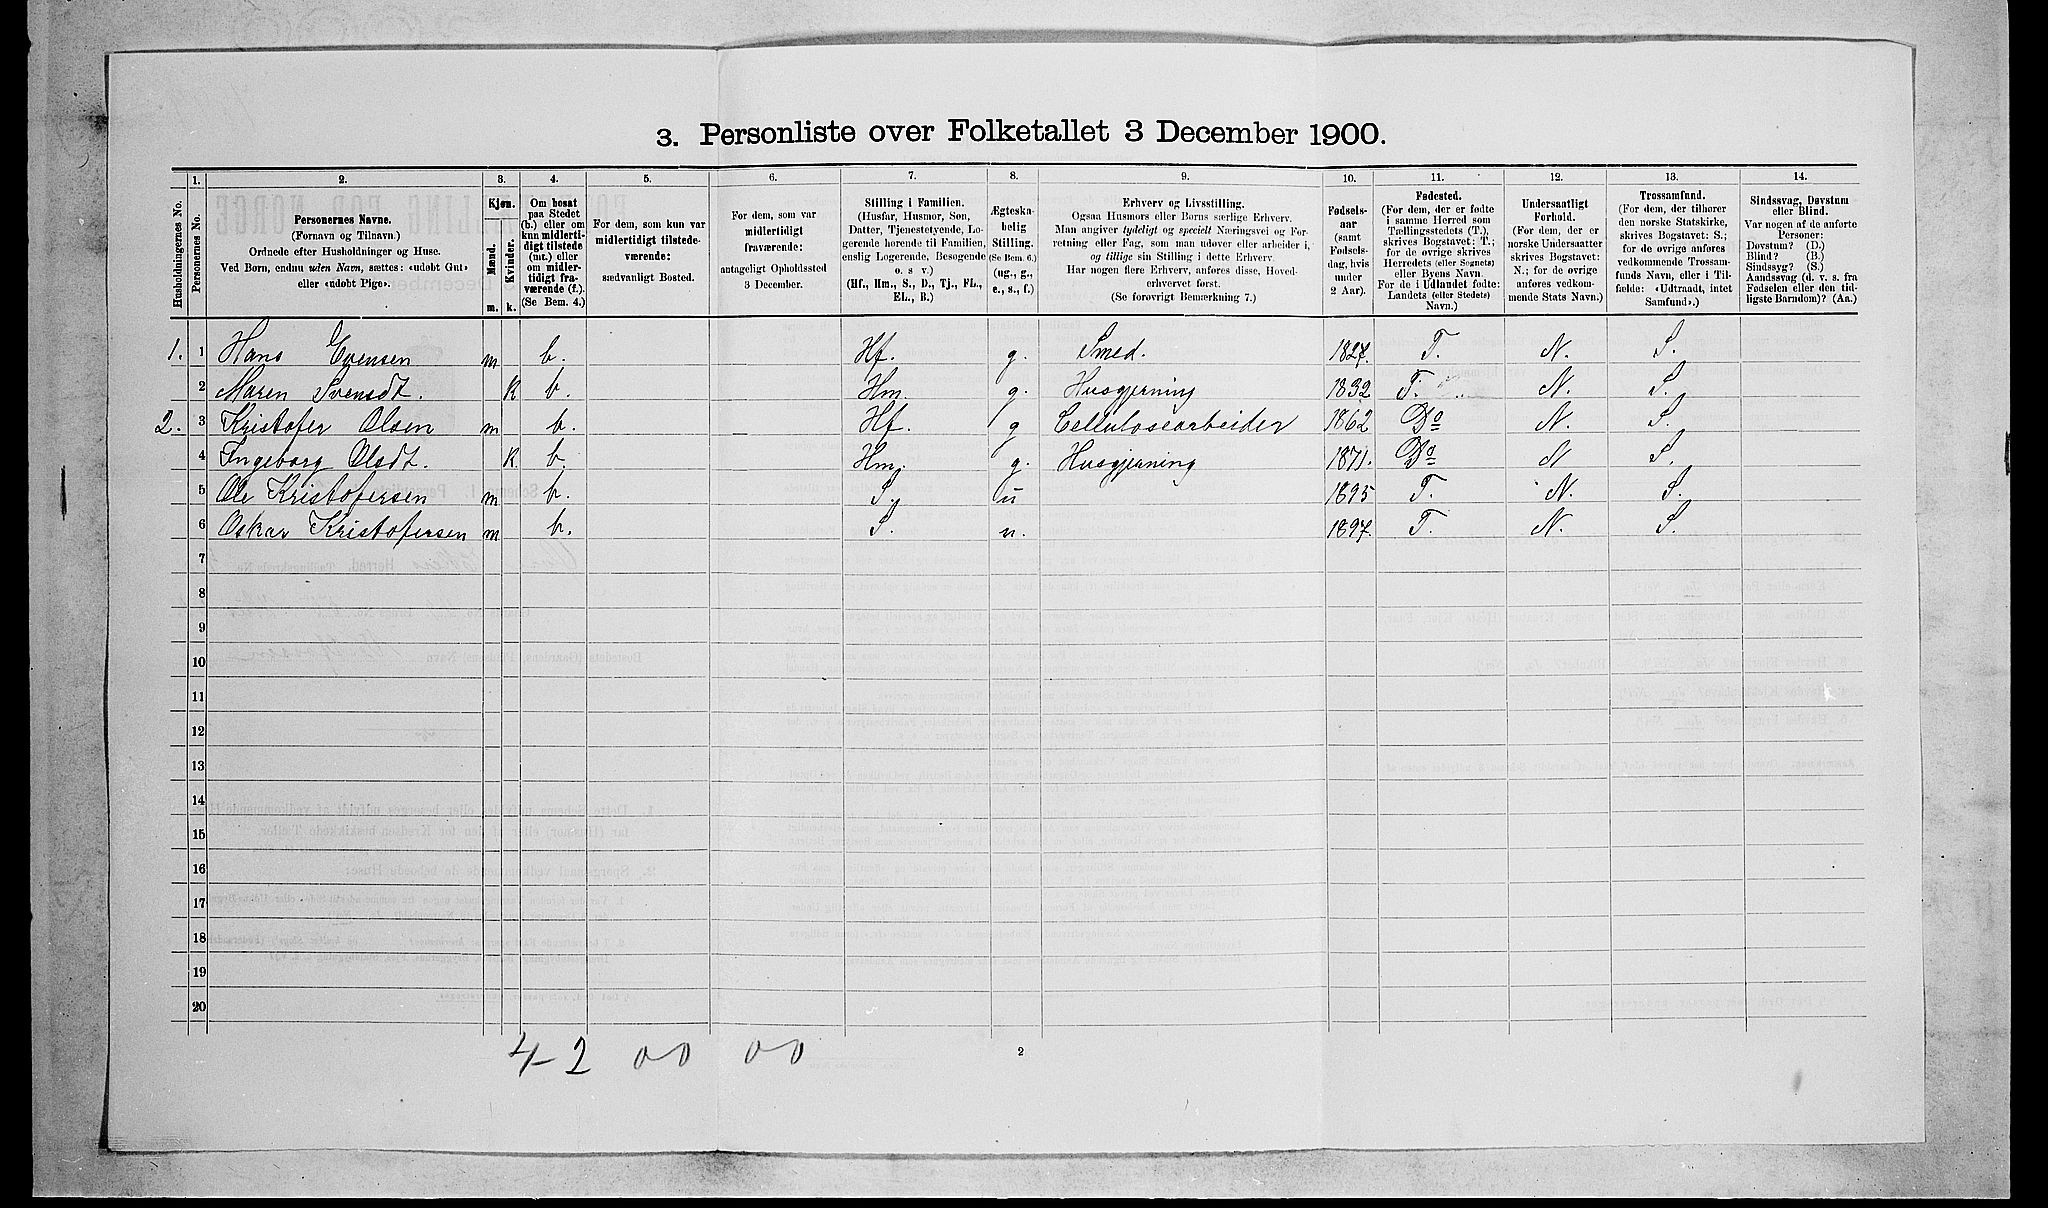 3. Personliste over Folketallet 3 December 1900.
Husholdningernes No.
1. Personernes No.
2. Personernes Navne.
(Fornavn og Tilnavn.)
Ordnede efter Husholdninger og Huse.
Ved Børn, endnu uden Navn, sættes: «udøbt Gut»
eller «udøbt Pige».
3. Kjøn.
Mænd. Kvinder.
m. k.
4. Om bosat
paa Stedet
(b.) eller om
kun midlerti-
digt tilstede
(mt.) eller
om midler-
tidigt fra-
værende (f.).
(Se Bem. 4.)
5. For dem, som kun var
midlertidigt tilstede-
værende:
sædvanligt Bosted.
6. For dem, som var
midlertidigt
fraværende:
antageligt Opholdssted
3 December.
7. Stilling i Familien.
(Husfar, Husmor, Søn,
Datter, Tjenestetyende, Lo-
gerende hørende til Familien,
enslig Logerende, Besøgende
o. s v.)
(Hf., Hm., S., D., Tj., FL.,
EL., B.)
8. Ægteska-
belig
Stilling.
(Se Bem. 6.)
(ug., g.,
e., s., f.)
9. Erhverv og Livsstilling.
Ogsaa Husmors eller Børns særlige Erhverv.
Man angiver tydeligt og specielt Næringsvei og For-
retning eller Fag, som man udøver eller arbeider i,
og tillige sin Stilling i dette Erhverv.
Har nogen flere Erhverv, anføres disse, Hoved-
erhvervet først.
(Se forøvrigt Bemærkning 7.)
10. Fødsels-
aar
(samt
Fødsels-
dag, hvis
under
2 Aar).
11. Fødested.
(For dem, der er fødte
i samme Herred som
Tællingsstedets (T.),
skrives Bogstavet: T.;
for de øvrige skrives
Herredets (eller Sognets)
eller Byens Navn.
For de i Udlandet fødte:
Landets (eller Stedets)
Navn.)
12. Undersaatligt
Forhold.
(For dem, der er
norske Undersaatter
skrives Bogstavet:
N.; for de øvrige
anføres vedkom-
mende Stats Navn.)
13. Trossamfund.
(For dem, der tilhører
den norske Statskirke,
skrives Bogstavet: S.;
for de øvrige anføres
vedkommende Trossam-
funds Navn, eller i Til-
fælde: «Udtraadt, intet
Samfund».)
14. Sindssvag, Døvstum
eller Blind.
Var nogen af de anførte
Personer:
Døvstum? (D.)
Blind? (B.)
Sindssyg? (S.)
Aandssvag (d. v. s. fra
Fødselen eller den tid-
ligste Barndom)? (Aa.)
1. 1 Hans Evensen m b. Hf. g. Smed. 1827. T. N. S.
2 Maren Svensdt. k b. Hm. g. Husgjerning 1832 T. N. S.
2. 3 Kristofer Olsen m b. Hf. g Cellulosearbeider 1862 Do N. S.
4 Ingeborg Olsdt. k. b. Hm. g. Husgjerning 1871. Do N S.
5 Ole Kristofersen m b. S. u 1895 T. N. S.
6 Oskar Kristofersen m b. S. u. 1897. T. N. S.
7
8
9
10
11
12
13
14
15
16
17
18
19
20
4 - 2 00 00
2